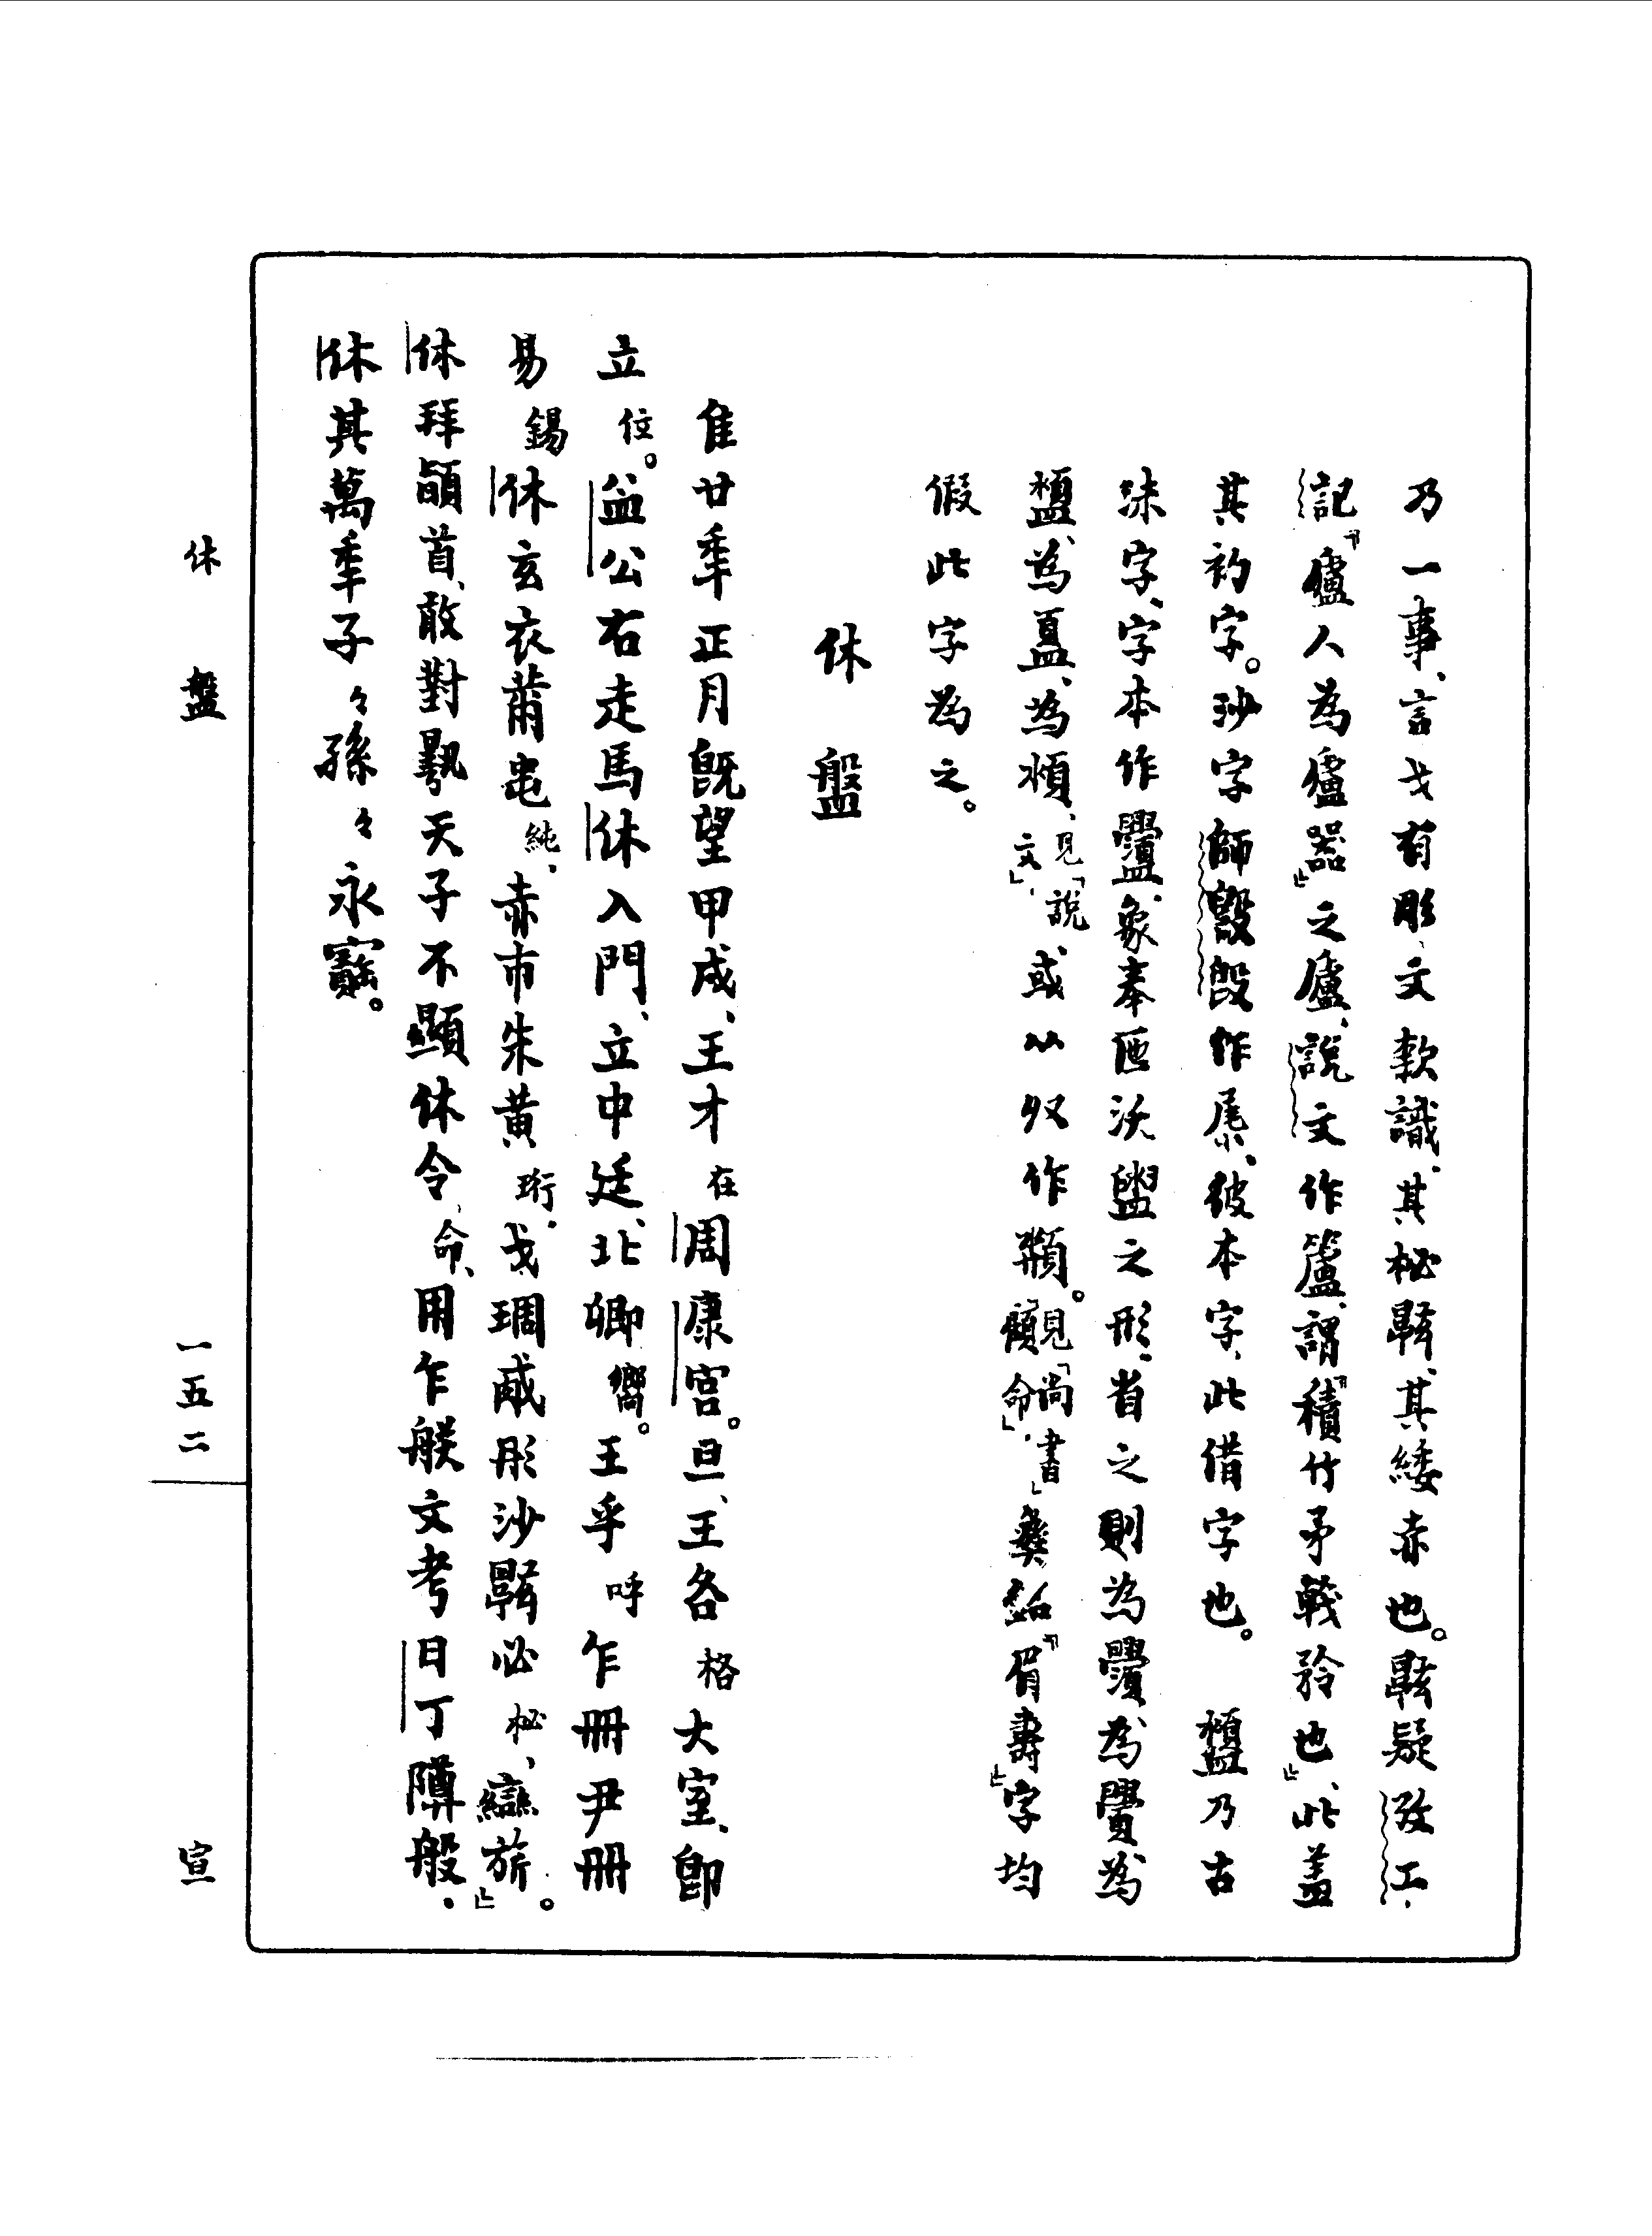 乃一事、言戈有彫文款識、其柲䪅、其緌赤也。䪅疑攷工
記「廬人為廬器」之廬、說文作籚、謂「積竹矛戟矜也」、此盖
其初字。沙字師𣪘𣪘作㞙、彼本字、此借字也。乃古
沬字、字本作、象奉匜沃盥之形、省之則為為釁為
為為湏、見「說文」、或从収作。見「尚書」「顧命」。彝銘「眉壽」字均
假此字為之。
休盤
隹廿年正月既望甲戌、王才在周康宮。旦、王各格大室、卽
立位。益公右走馬休入門、立中廷、北卿嚮。王乎呼乍冊尹冊
易錫休玄衣黹黽純、赤巿朱黃珩、戈琱㦸彤沙必柲、䜌旂」。
休拜𩒨首、敢對天子不顯休令命、用乍朕文考日丁𨺩般、
休其萬年子々孫々永寶。
休盤
一五二
宣